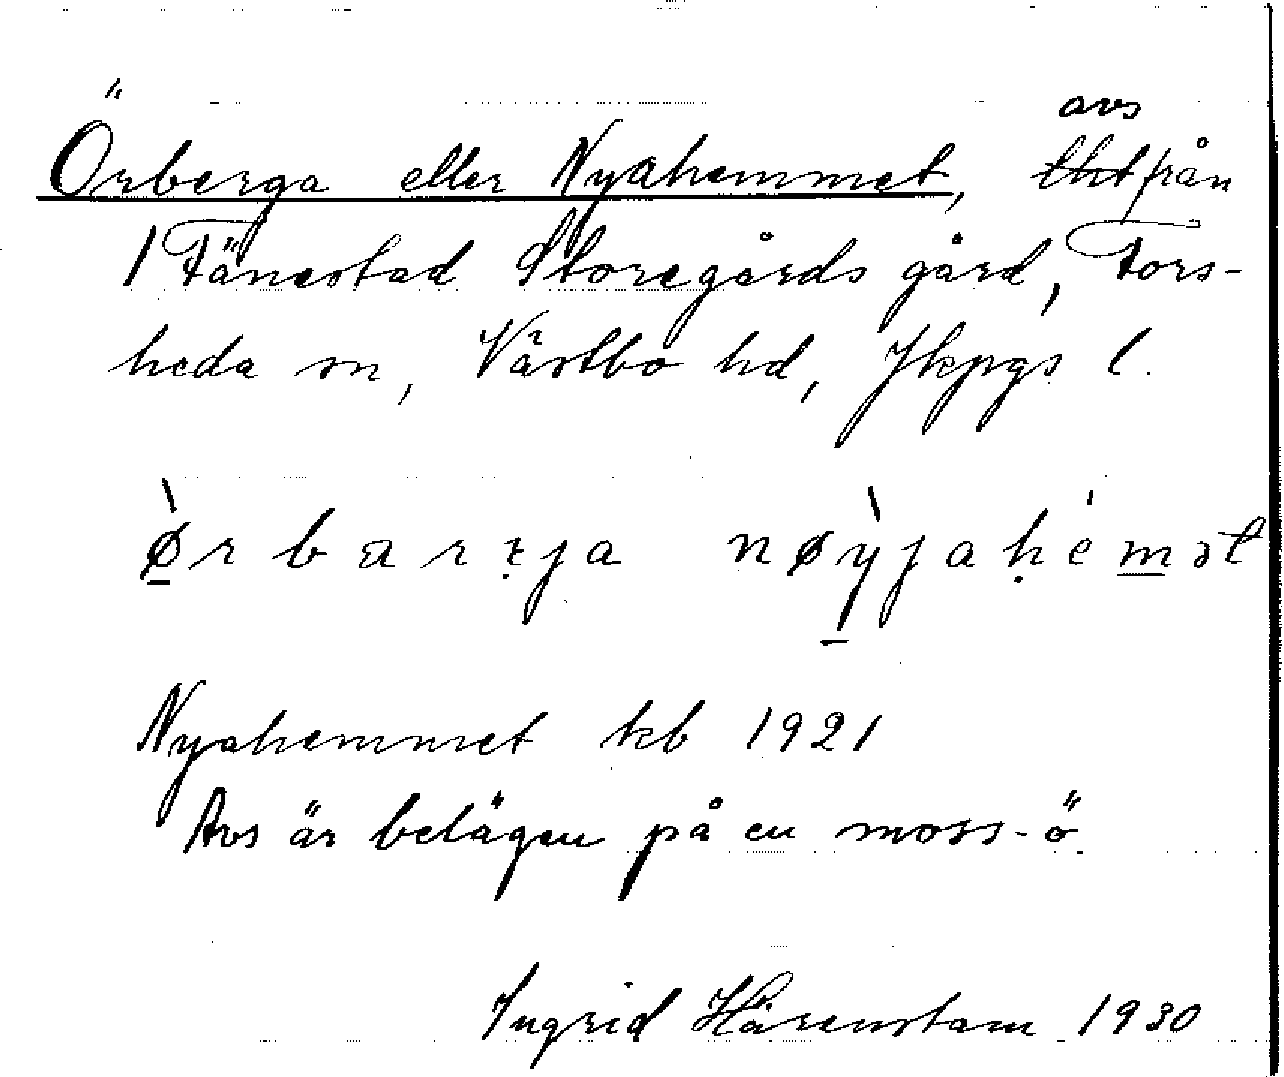 Örberga eller Nyahemmet, avs från
1 Fänestad Storegårds gård, Fors-
heda sn, Västbo hd, Jkpgs l.
Nyahemmet kb 1921
Avs är belägen på en moss-ö
Ingrid Härenstam 1930